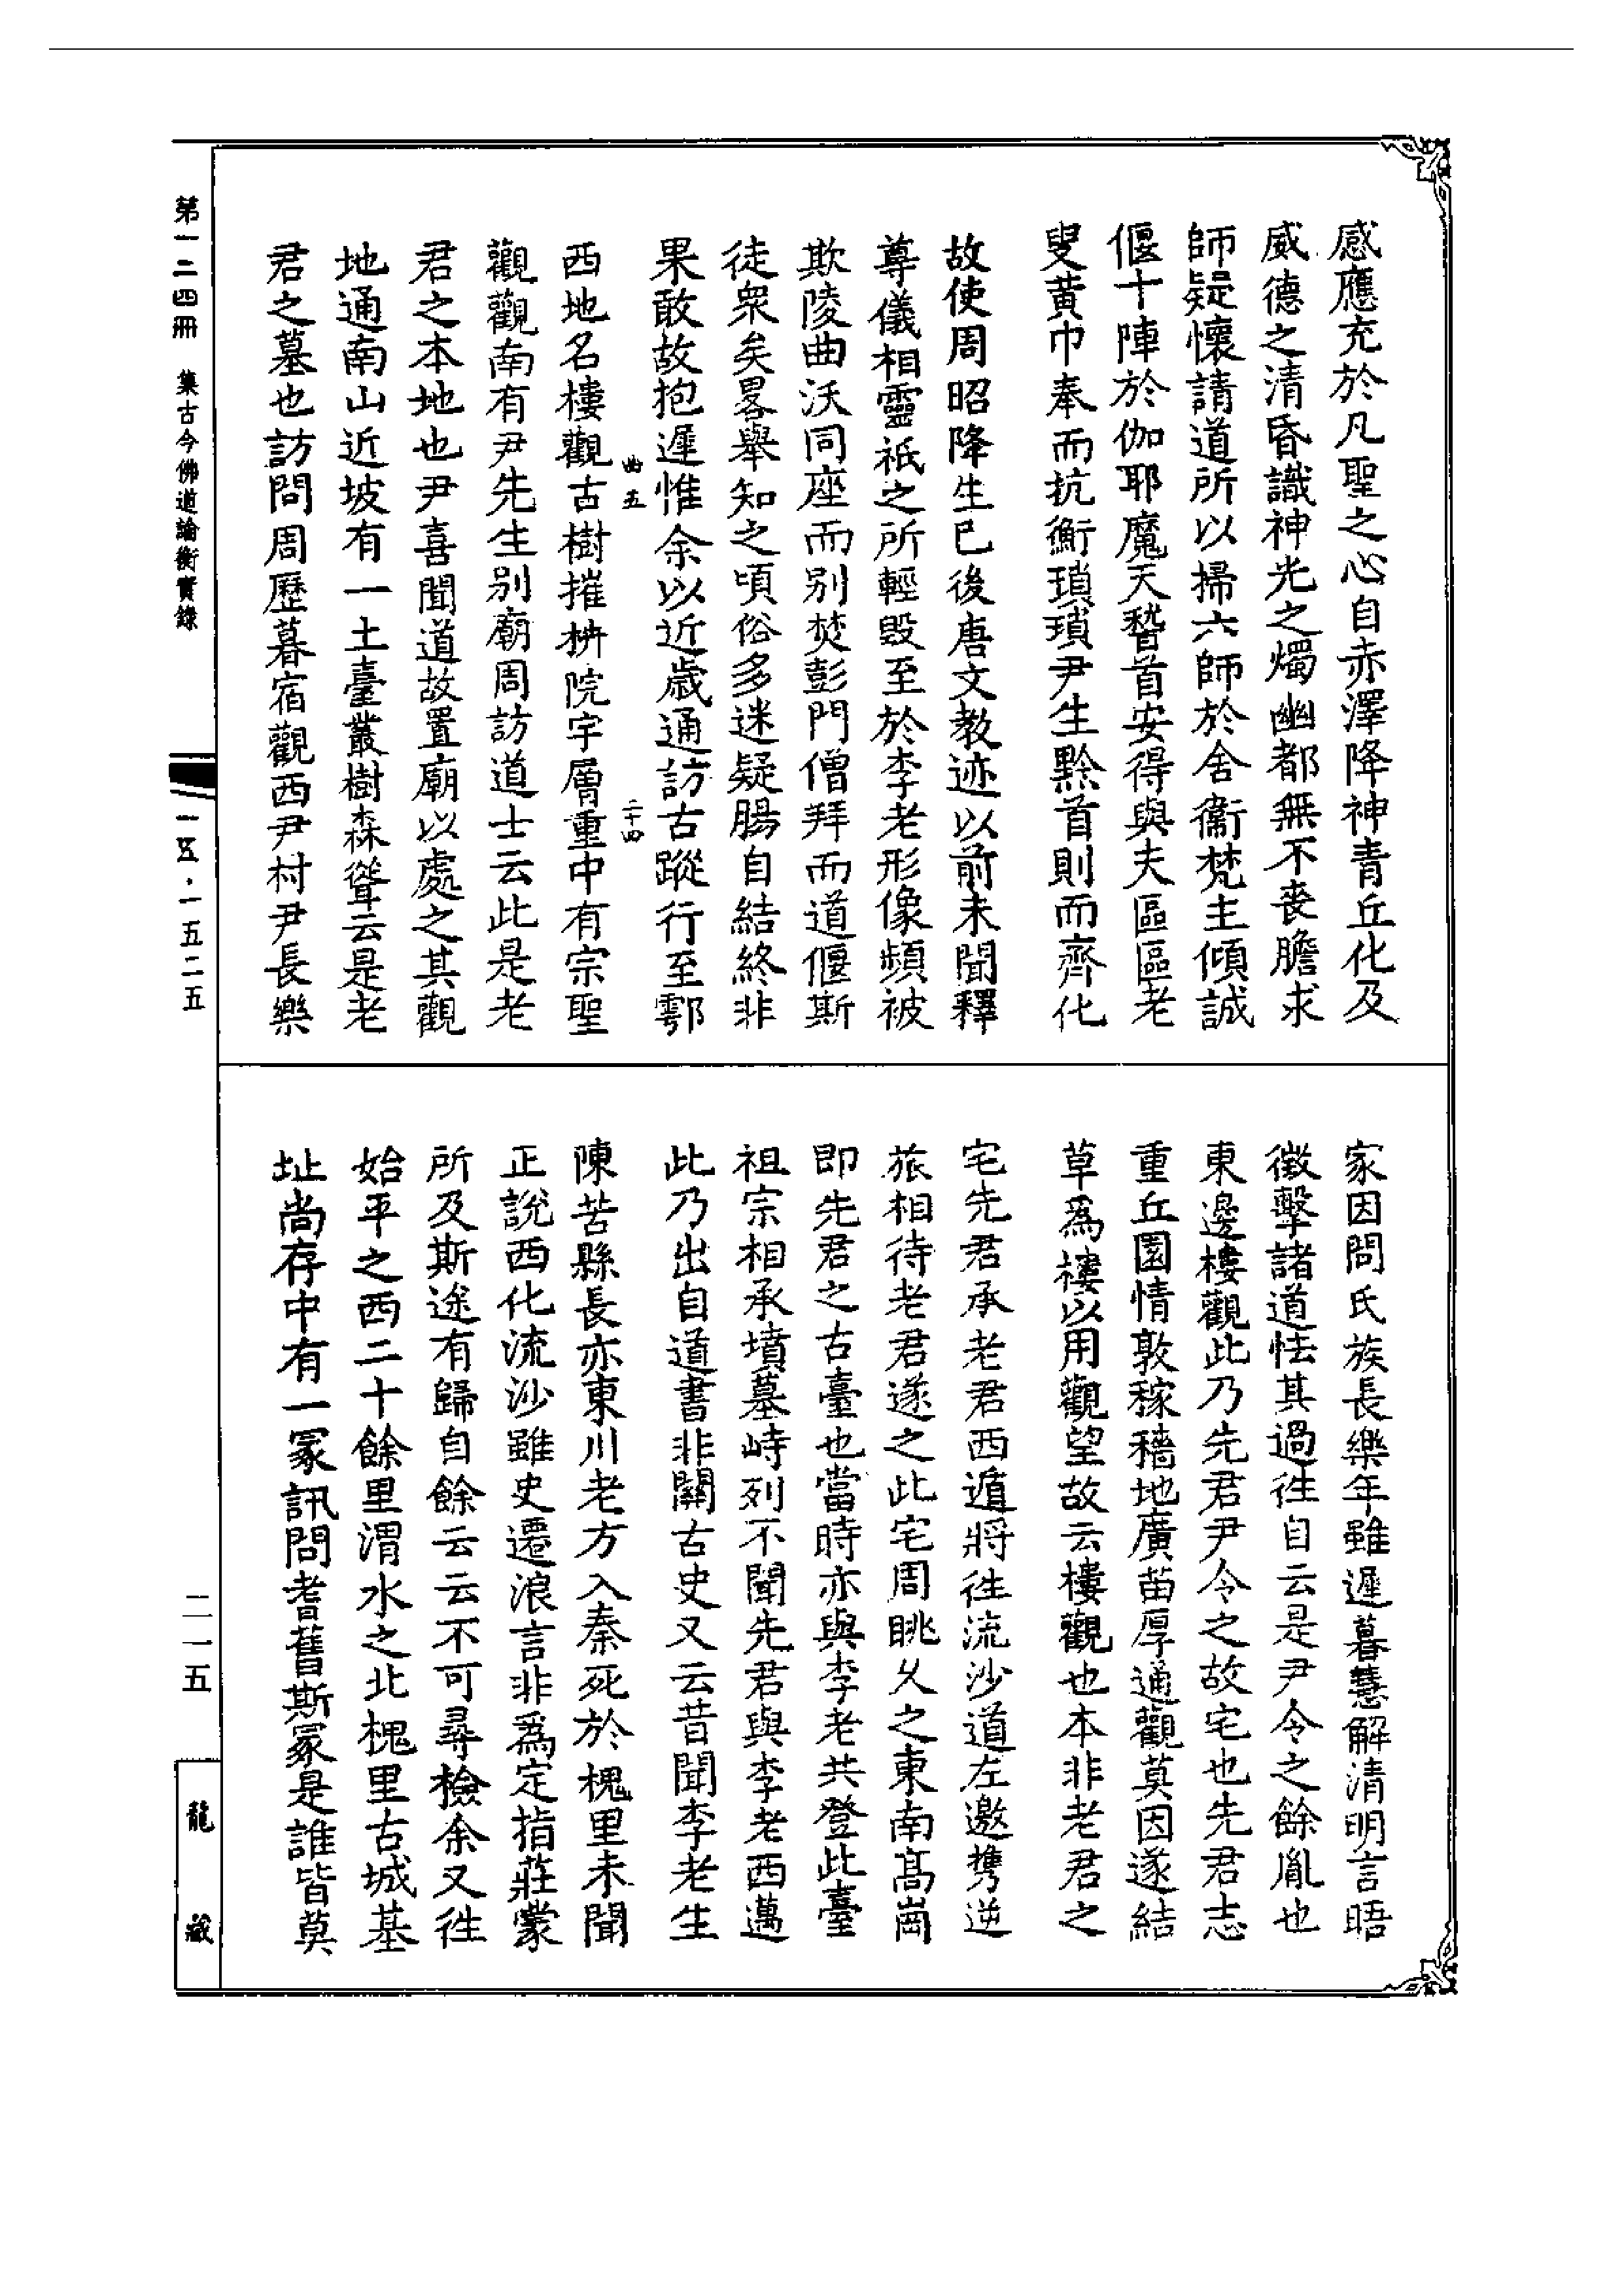 感應充於凡聖之心自赤澤降神青丘化及
威德之清昏識神光之燭幽都無不喪膽求
師疑懷請道所以掃六師於舍衞梵主傾誠
偃十陣於伽耶魔天稽首安得與夫區區老
叟黄巾奉而抗衡瑣瑣尹生黔首則而齊化
故使周昭降生已後唐文教迹以前未聞釋
尊儀相靈祇之所輕毀至於李老形像頻被
欺陵曲沃同座而别焚彭門僧拜而道偃斯
徒衆矣畧舉知之頃俗多迷疑腸自結終非
果敢故抱遲惟余以近歲通訪古蹤行至鄠
曲五
二十四
西地名樓觀古樹摧枿院宇層重中有宗聖
觀觀南有尹先生别廟周訪道士云此是老
君之本地也尹喜聞道故置廟以處之其觀
地通南山近坡有一土臺叢樹森聳云是老
君之墓也訪問周歷暮宿觀西尹村尹長樂
家因問氏族長樂年雖遲暮慧解清明言晤
徵擊諸道怯其過徃自云是尹令之餘胤也
東邊樓觀此乃先君尹令之故宅也先君志
重丘園情敦稼穡地廣苗厚通觀莫因遂結
草爲樓以用觀望故云樓觀也本非老君之
宅先君承老君西遁將徃流沙道左邀携逆
旅相待老君遂之此宅周眺乆之東南髙崗
即先君之古臺也當時亦與李老共登此臺
祖宗相承墳墓峙列不聞先君與李老西邁
此乃出自道書非關古史又云昔聞李老生
陳苦縣長亦東川老方入秦死於槐里未聞
正說西化流沙雖史遷浪言非爲定指莊蒙
所及斯途有歸自餘云云不可尋檢余又徃
始平之西二十餘里渭水之北槐里古城基
址尚存中有一冡訊問耆舊斯冡是誰皆莫
第一二四冊 集古今佛道論衡實錄
一五五·一五二五
二一五
龍藏